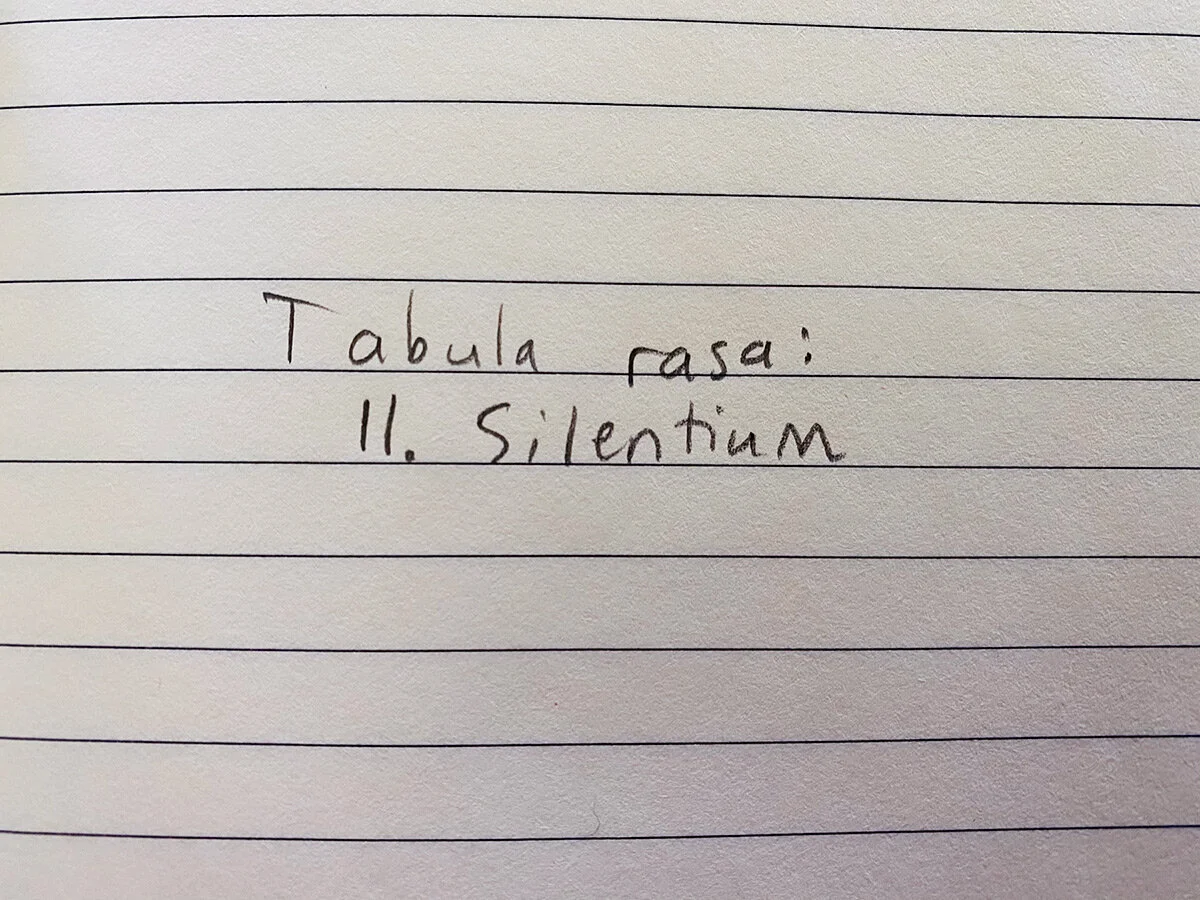 Tabula rasa:
II. Silentium